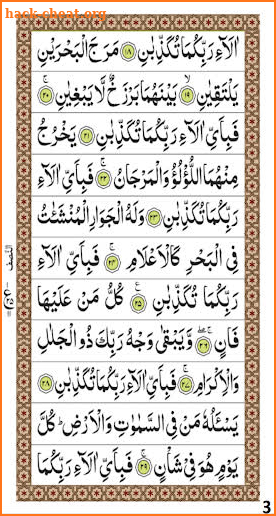 hack-cheat.org
اٰلَآءِ رَبِّكُمَا تُكَذِّبٰنِ ﴿۱۸﴾ مَرَجَ الْبَحْرَيْنِ
يَلْتَقِيٰنِ ﴿۱۹﴾ بَيْنَهُمَا بَرْزَخٌ لَّا يَبْغِيٰنِ ﴿۲۰﴾
فَبِاَيِّ اٰلَآءِ رَبِّكُمَا تُكَذِّبٰنِ ﴿۲۱﴾ يَخْرُجُ
مِنْهُمَا اللُّؤْلُؤُ وَالْمَرْجَانُ ﴿۲۲﴾ فَبِاَيِّ اٰلَآءِ
رَبِّكُمَا تُكَذِّبٰنِ ﴿۲۳﴾ وَلَهُ الْجَوَارِ الْمُنْشَئٰتُ
فِي الْبَحْرِ كَالْاَعْلَامِ ﴿۲۴﴾ فَبِاَيِّ اٰلَآءِ
رَبِّكُمَا تُكَذِّبٰنِ ﴿۲۵﴾ كُلُّ مَنْ عَلَيْهَا
فَانٍ ﴿۲۶﴾ وَّيَبْقٰى وَجْهُ رَبِّكَ ذُو الْجَلٰلِ
وَالْاِكْرَامِ ﴿۲۷﴾ فَبِاَيِّ اٰلَآءِ رَبِّكُمَا تُكَذِّبٰنِ ﴿۲۸﴾
يَسْئَلُهٗ مَنْ فِي السَّمٰوٰتِ وَالْاَرْضِ ؕ كُلَّ
يَوْمٍ هُوَ فِيْ شَاْنٍ ﴿۲۹﴾ فَبِاَيِّ اٰلَآءِ رَبِّكُمَا
النصف
3
hack-cheat.org